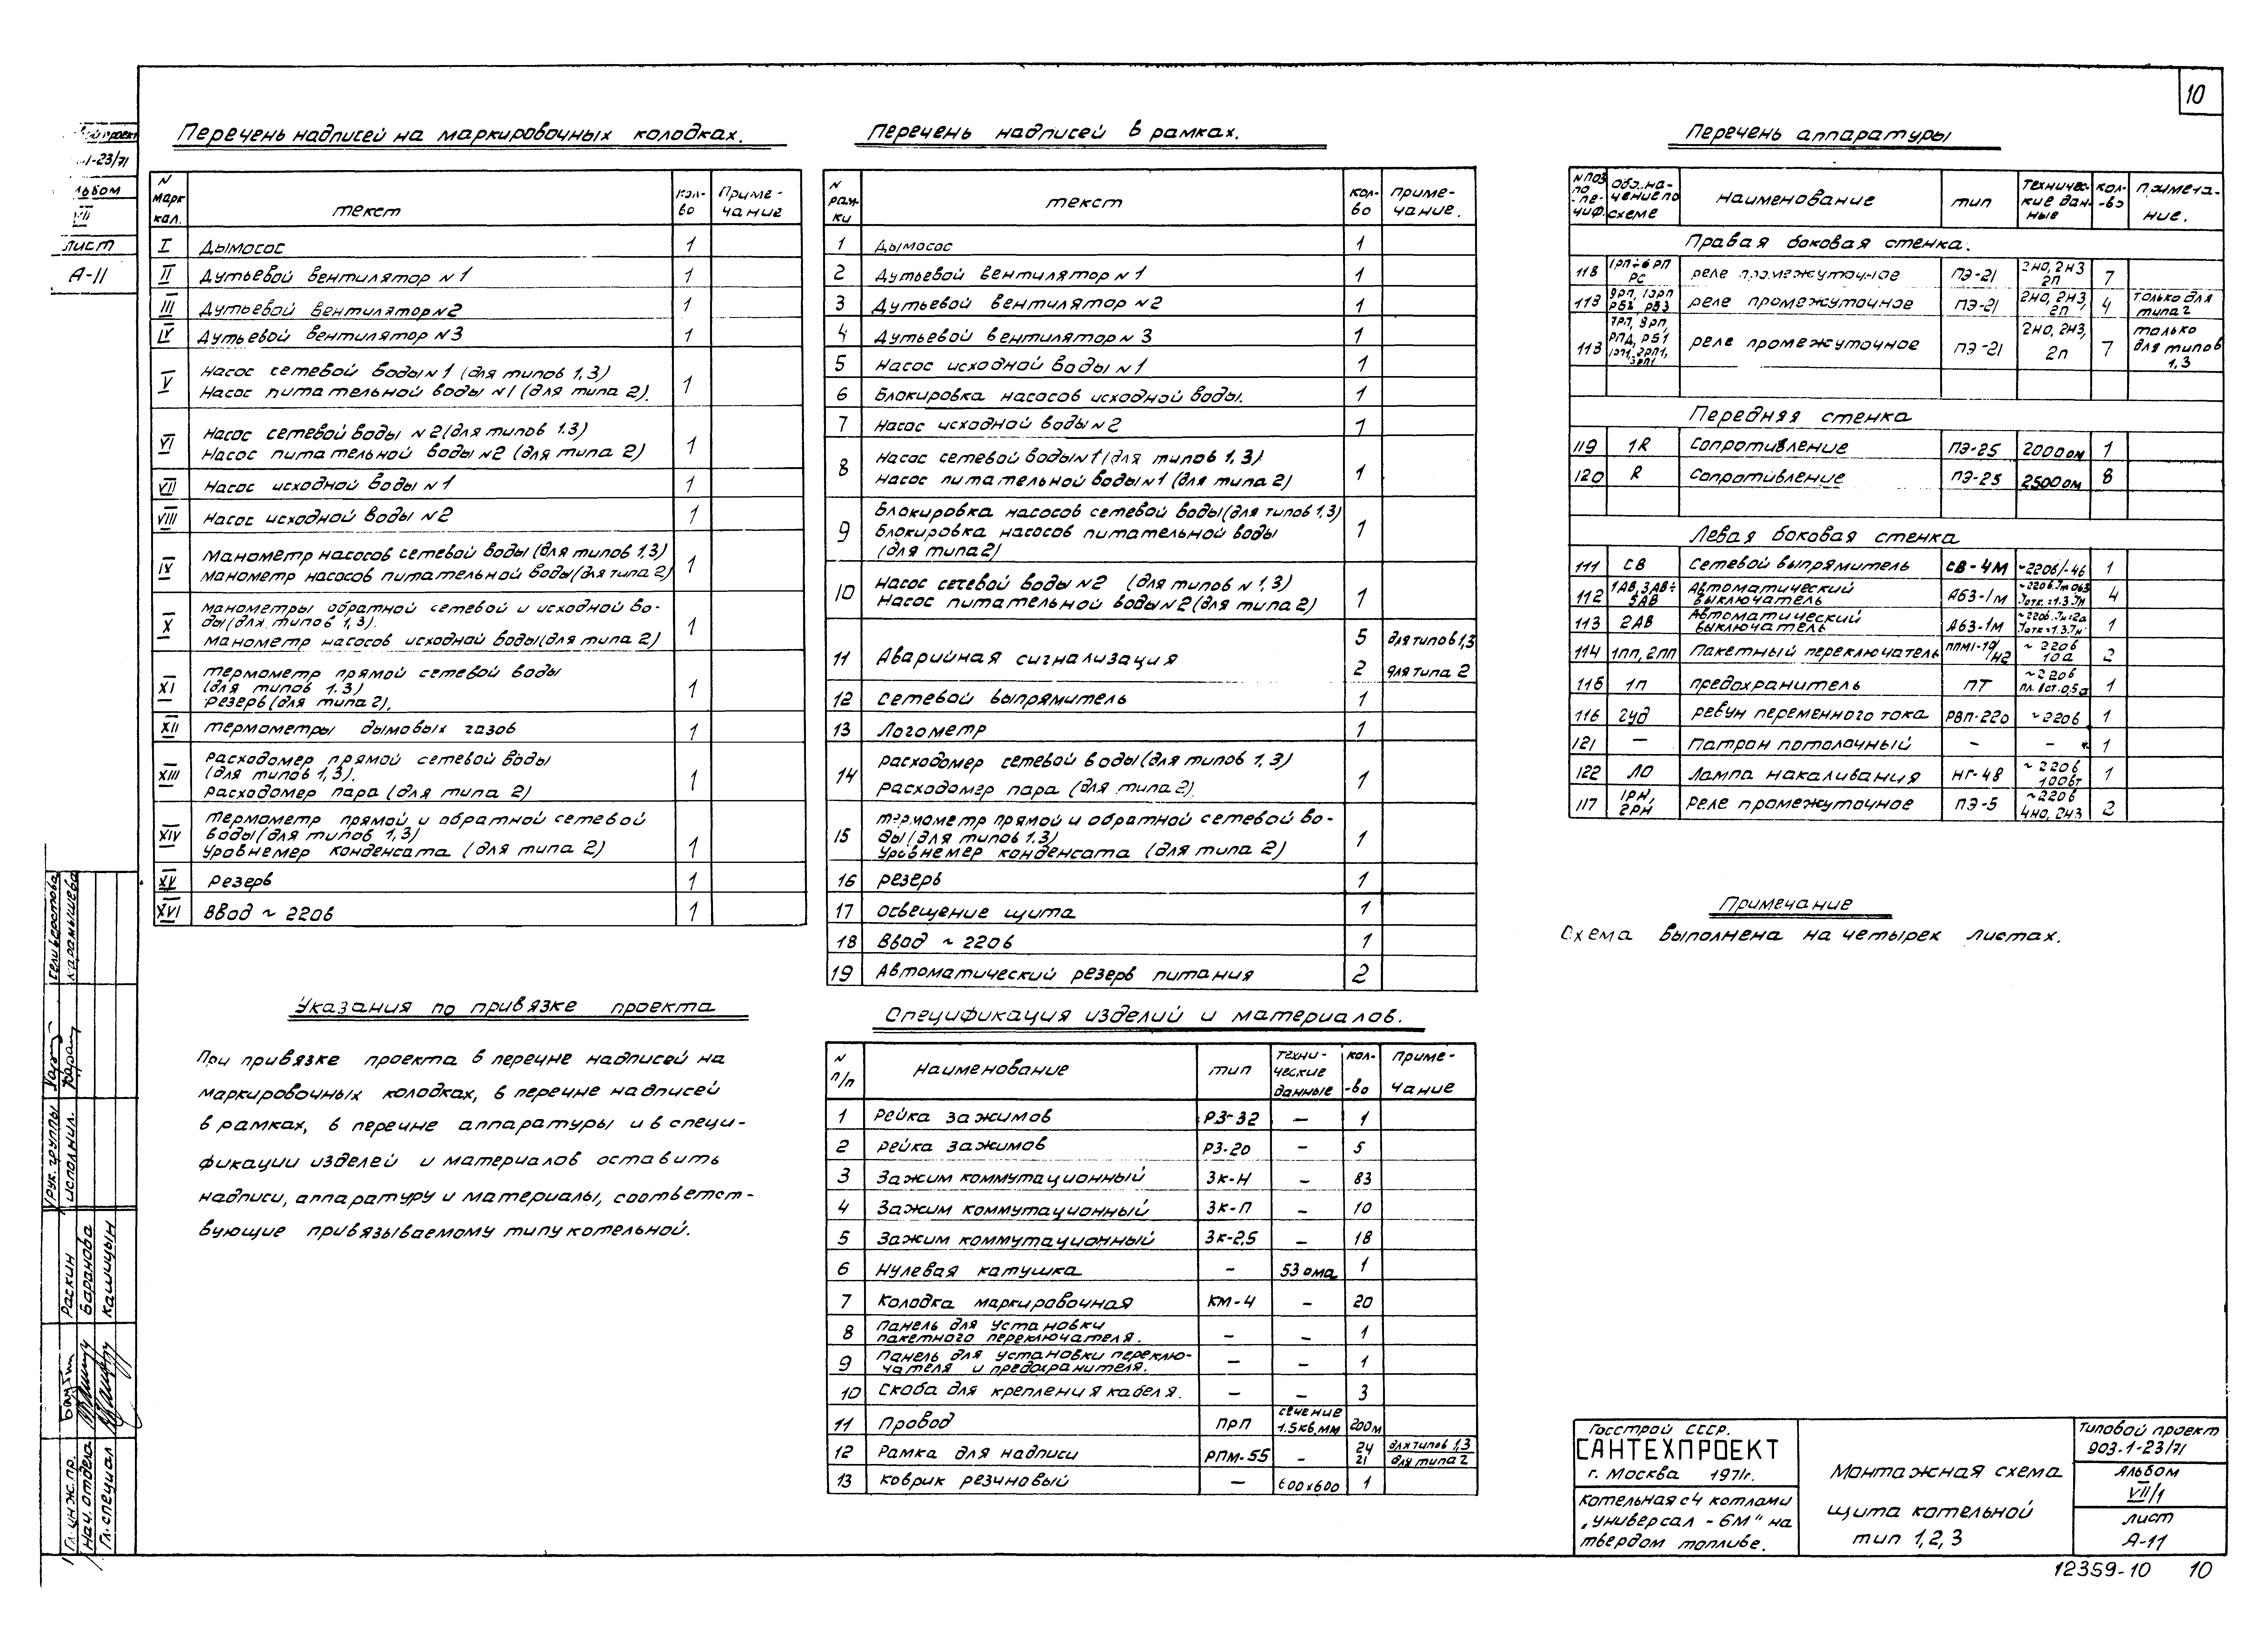 10
Перечень надписей на маркировочных колодках.
N марк кол. | текст | кол-во | Примечание
I | Дымосос | 1
II | Дутьевой вентилятор N1 | 1
III | Дутьевой вентилятор N2 | 1
IV | Дутьевой вентилятор N3 | 1
V | Насос сетевой воды N1 (для типов 1,3)
Насос питательной воды N1 (для типа 2). | 1
VI | Насос сетевой воды N2 (для типов 1.3)
Насос питательной воды N2 (для типа 2) | 1
VII | Насос исходной воды N1 | 1
VIII | Насос исходной воды N2 | 1
IX | Манометр насосов сетевой воды (для типов 1,3)
манометр насосов питательной воды (для типа 2) | 1
X | манометры обратной сетевой и исходной во-
ды (для типов 1,3).
манометр насосов исходной воды (для типа 2) | 1
XI | термометр прямой сетевой воды
(для типов 1.3)
резерв (для типа 2). | 1
XII | термометры дымовых газов | 1
XIII | расходомер прямой сетевой воды
(для типов 1,3).
расходомер пара (для типа 2) | 1
XIV | термометр прямой и обратной сетевой
воды (для типов 1,3)
уровнемер конденсата (для типа 2) | 1
XV | резерв | 1
XVI | Ввод ~ 220в | 1
Указания по привязке проекта
При привязке проекта в перечне надписей на
маркировочных колодках, в перечне надписей
в рамках, в перечне аппаратуры и в специ-
фикации изделей и материалов оставить
надписи, аппаратуру и материалы, соответст-
вующие привязываемому типу котельной.
Перечень надписей в рамках.
N рам-ки | текст | кол-во | примечание.
1 | Дымосос | 1
2 | Дутьевой вентилятор N1 | 1
3 | Дутьевой вентилятор N2 | 1
4 | Дутьевой вентилятор N3 | 1
5 | Насос исходной воды N1 | 1
6 | Блокировка насосов исходной воды. | 1
7 | Насос исходной воды N2 | 1
8 | Насос сетевой воды N1 (для типов 1,3)
Насос питательной воды N1 (для типа 2) | 1
9 | Блокировка насосов сетевой воды (для типов 1,3)
Блокировка насосов питательной воды
(для типа 2) | 1
10 | Насос сетевой воды N2 (для типов N 1,3)
Насос питательной воды N2 (для типа 2) | 1
11 | Аварийная сигнализация | 5 | для типов 1,3
2 | для типа 2
12 | Сетевой выпрямитель | 1
13 | Логометр | 1
14 | расходомер сетевой воды (для типов 1,3)
расходомер пара (для типа 2) | 1
15 | термометр прямой и обратной сетевой во-
ды (для типов 1.3)
уровнемер конденсата (для типа 2) | 1
16 | резерв | 1
17 | освещение щита | 1
18 | Ввод ~ 220в | 1
19 | Автоматический резерв питания | 2
Спецификация изделий и материалов.
N п/п | Наименование | тип | технические данные | кол-во | примечание
1 | Рейка зажимов | РЗ-32 | — | 1
2 | рейка зажимов | РЗ-20 | — | 5
3 | Зажим коммутационный | ЗК-Н | — | 83
4 | Зажим коммутационный | ЗК-П | — | 10
5 | Зажим коммутационный | ЗК-2,5 | — | 18
6 | Нулевая катушка | — | 53 ома | 1
7 | Колодка маркировочная | КМ-4 | — | 20
8 | Панель для установки
пакетного переключателя. | — | — | 1
9 | Панель для установки переклю-
чателя и предохранителя. | — | — | 1
10 | Скоба для крепления кабеля. | — | — | 3
11 | Провод | ПРП | сечение 1.5кв.мм | 200м
12 | Рамка для надписи | РПМ-55 | — | 24 | для типов 1,3
21 | для типа 2
13 | коврик резиновый | — | 600х600 | 1
Перечень аппаратуры
N поз по спе-циф. | обозначение по схеме | Наименование | тип | технические данные | кол-во | примечание.
Правая боковая стенка.
118 | 1рп÷6рп РС | реле промежуточное | ПЭ-21 | 2но, 2нз 2п | 7
118 | 9рп, 10рп рБ2, рБ3 | реле промежуточное | ПЭ-21 | 2но, 2нз, 2п | 4 | только для типа 2
118 | реле промежуточное | ПЭ-21 | 2но, 2нз, 2п | 7 | только для типов 1,3
Передняя стенка
119 | 1R | Сопротивление | ПЭ-25 | 2000ом | 1
120 | R | Сопротивление | ПЭ-25 | 2500ом | 8
Левая боковая стенка
111 | СВ | Сетевой выпрямитель | СВ-4М | ~220в/-4в | 1
112 | 1АВ, 3АВ÷5АВ | Автоматический выключатель | А63-1м | 4
113 | 2АВ | Автоматический выключатель | А63-1м | 1
114 | 1пп, 2пп | Пакетный переключатель | ППМ1-10/н2 | ~ 220в 10а | 2
115 | 1п | предохранитель | ПТ | ~ 220в пл. вст. 0,5а | 1
116 | гуд | ревун переменного тока | РВП-220 | ~ 220в | 1
121 | — | Патрон потолочный | — | — | 1
122 | ЛО | Лампа накаливания | НГ-48 | ~ 220в 100вт | 1
117 | 1рн, 2рн | реле промежуточное | ПЭ-5 | ~220в 4но, 2нз | 2
Примечание
Схема выполнена на четырех листах.
Госстрой СССР.
САНТЕХПРОЕКТ
г. Москва 1971г.
котельная с 4 котлами
„Универсал - 6М" на
твердом топливе.
Монтажная схема
щита котельной
тип 1,2,3
Типовой проект
903-1-23/71
Альбом
VII/1
лист
А-11
12359-10 10
лист
А-11
Гл. инж. пр. Раскин
Нач. отдела Баранова
Гл. специал Кашицын
рук. группы
исполнил. карамышева